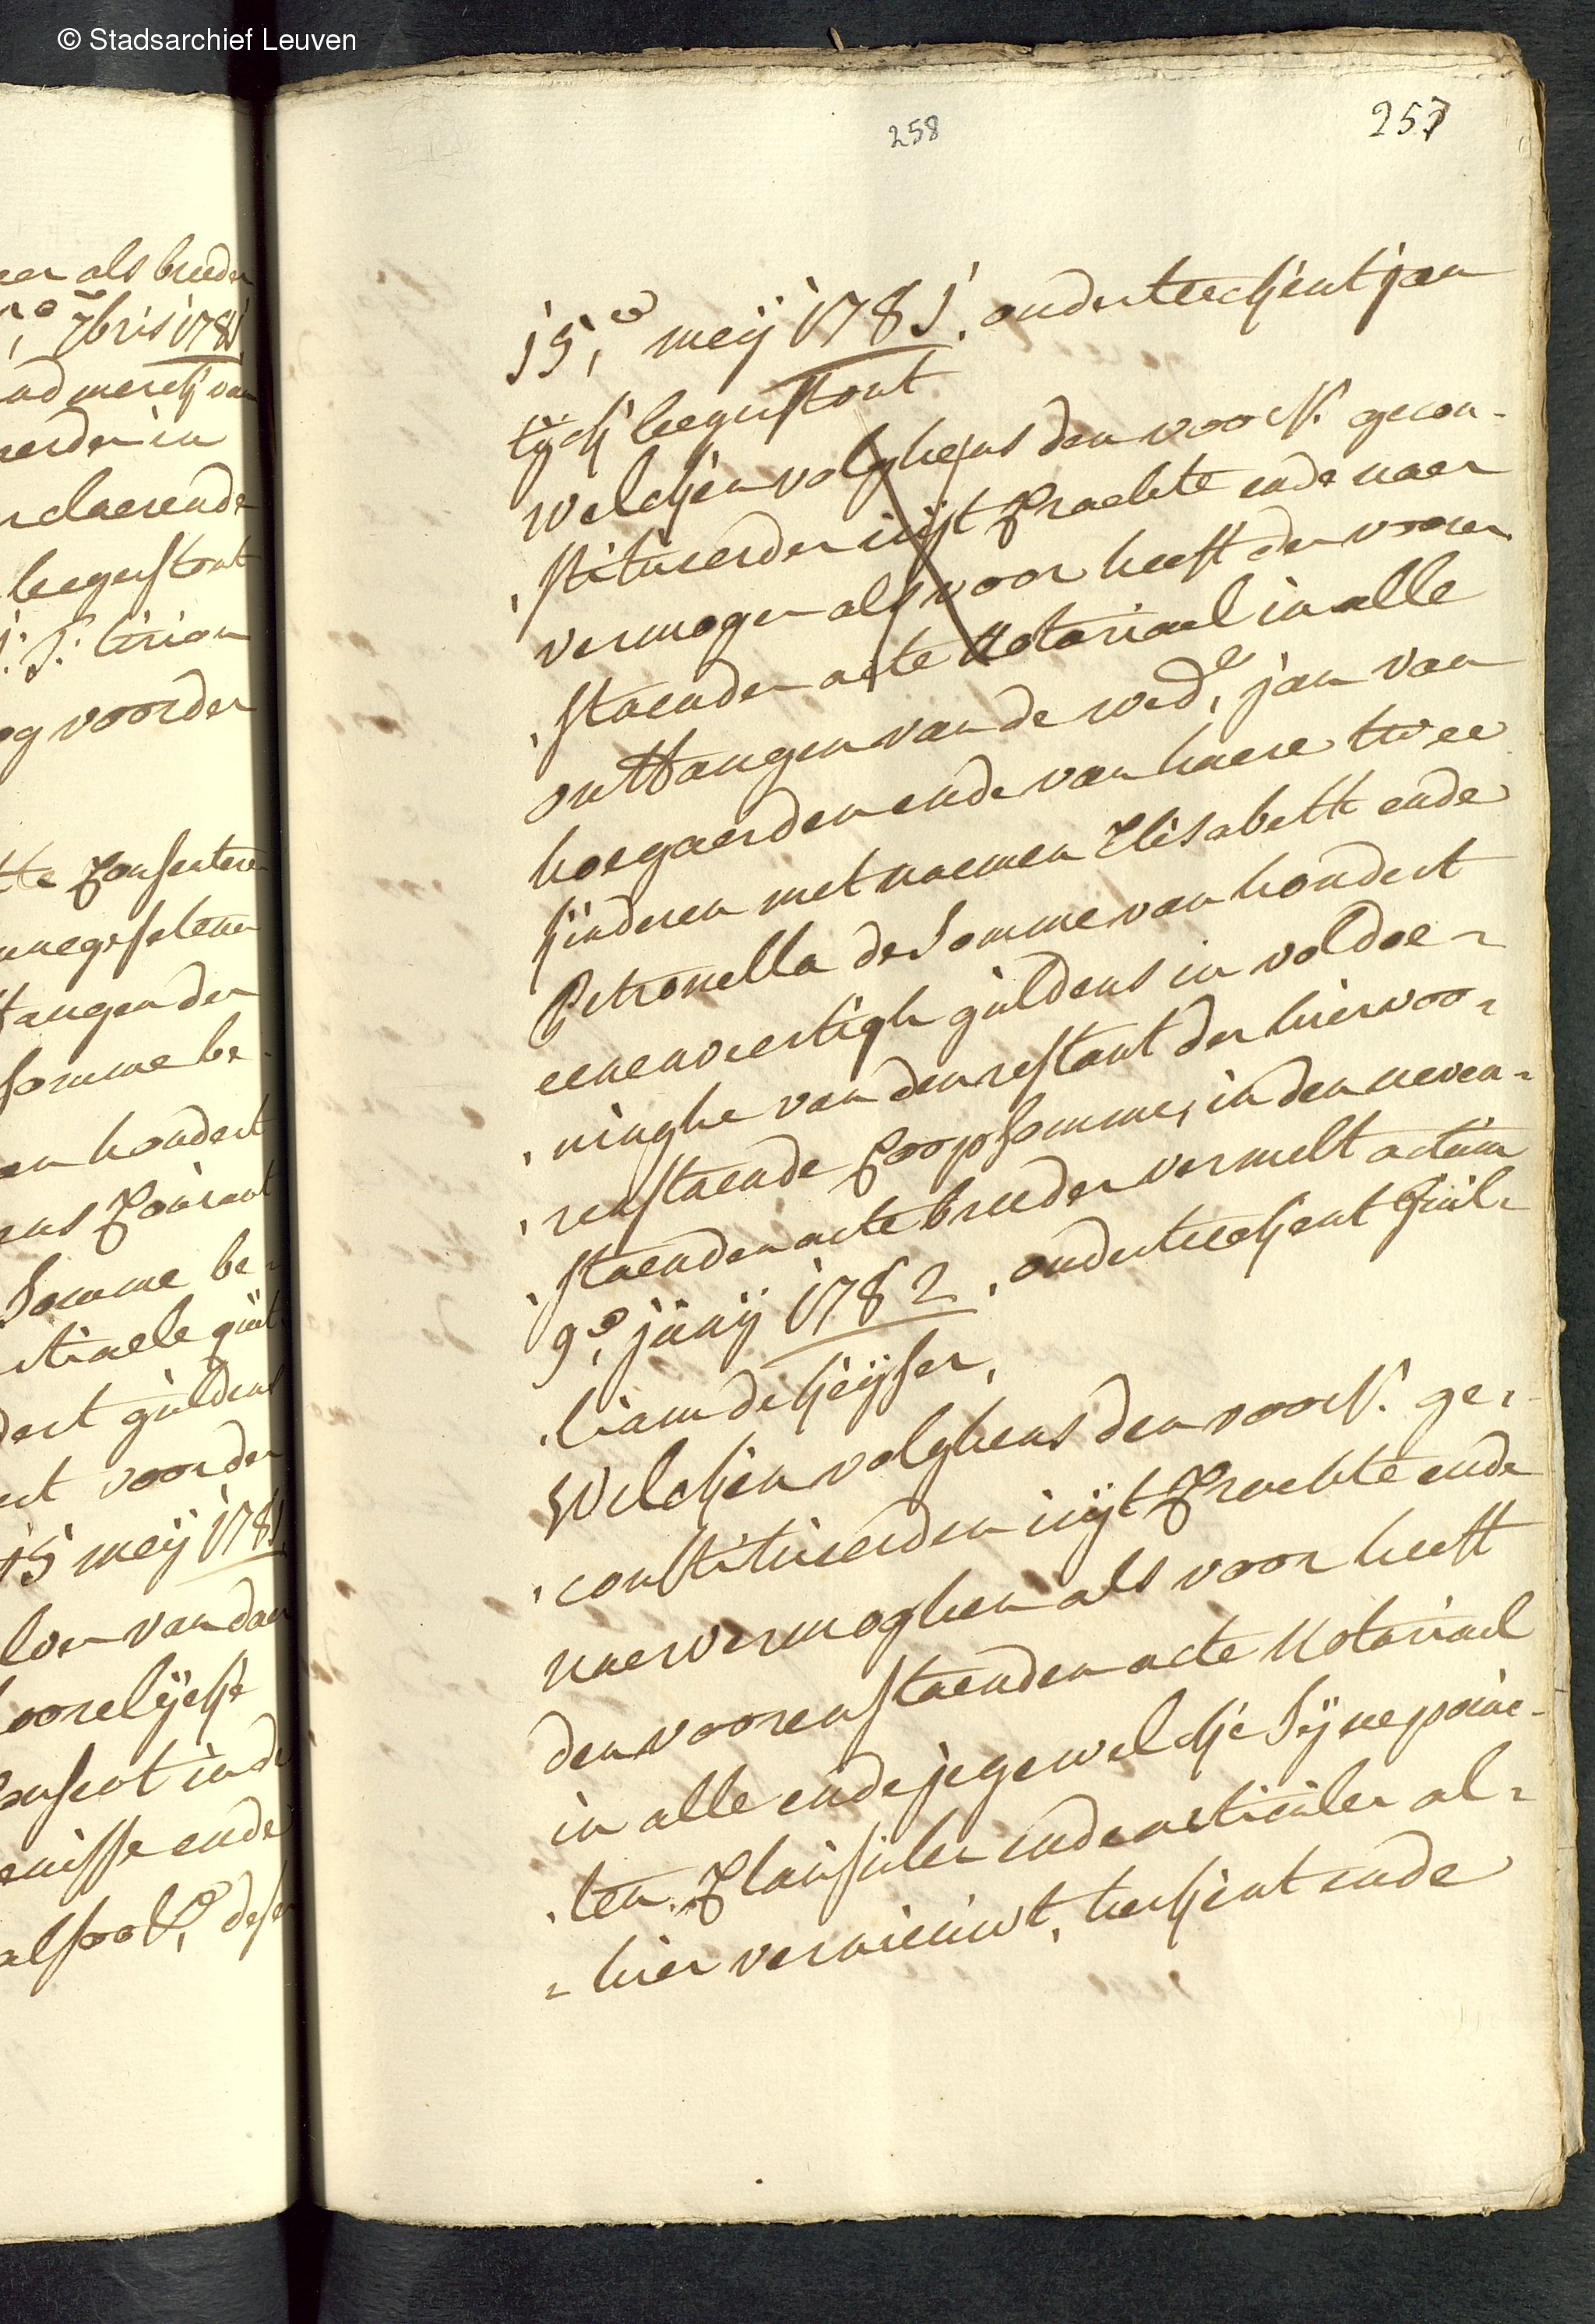 © Stadsarchief Leuven
258
257
er als breeder
7bris 1781
merck van
in
claerende
legerstont
voorder
Consenteren
angen den
somme be-
hondert
Courant
Somme be-
guldens
voorder
15 meij 1781
van den
oorelijcke
ende
alsoo
15,e meij 1781. onderteeckent jan
tijck legerstont
Welcken volghens den voors. gecon-
stitueerden uijt Crachte ende naer
vermogen als voor heeft den vooren
staenden acte Notariael in alle
ontfangen van de wed,e jan van
hoegaerden ende van haere twee
kinderen met naemen Elisabeth ende
Petronella de Somme van hondert
eenenveertigh guldens in voldoe-
ninghe van den restant der hiervoo-
renstaende Coopsomme, in den neven-
staenden acte breeder vermelt actum
9,o junij 1782. onderteeckent Guil-
liam de Keijser,
Welcken volghens den voors. ge-
constitueerden uijt Crachte ende
naervermoghen als voor heeft
den voorenstaenden acte Notariael
in alle ende jegewelcke Sijne poinc-
ten, Clausulen ende articulen al-
hier vernieuwt, herkent ende